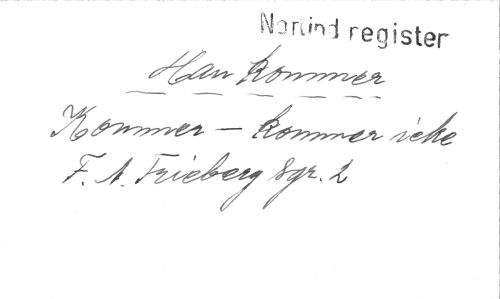 Notind register
Han kommer
Kommer - kommer icke
F. A. Frieberg Sgr. 2